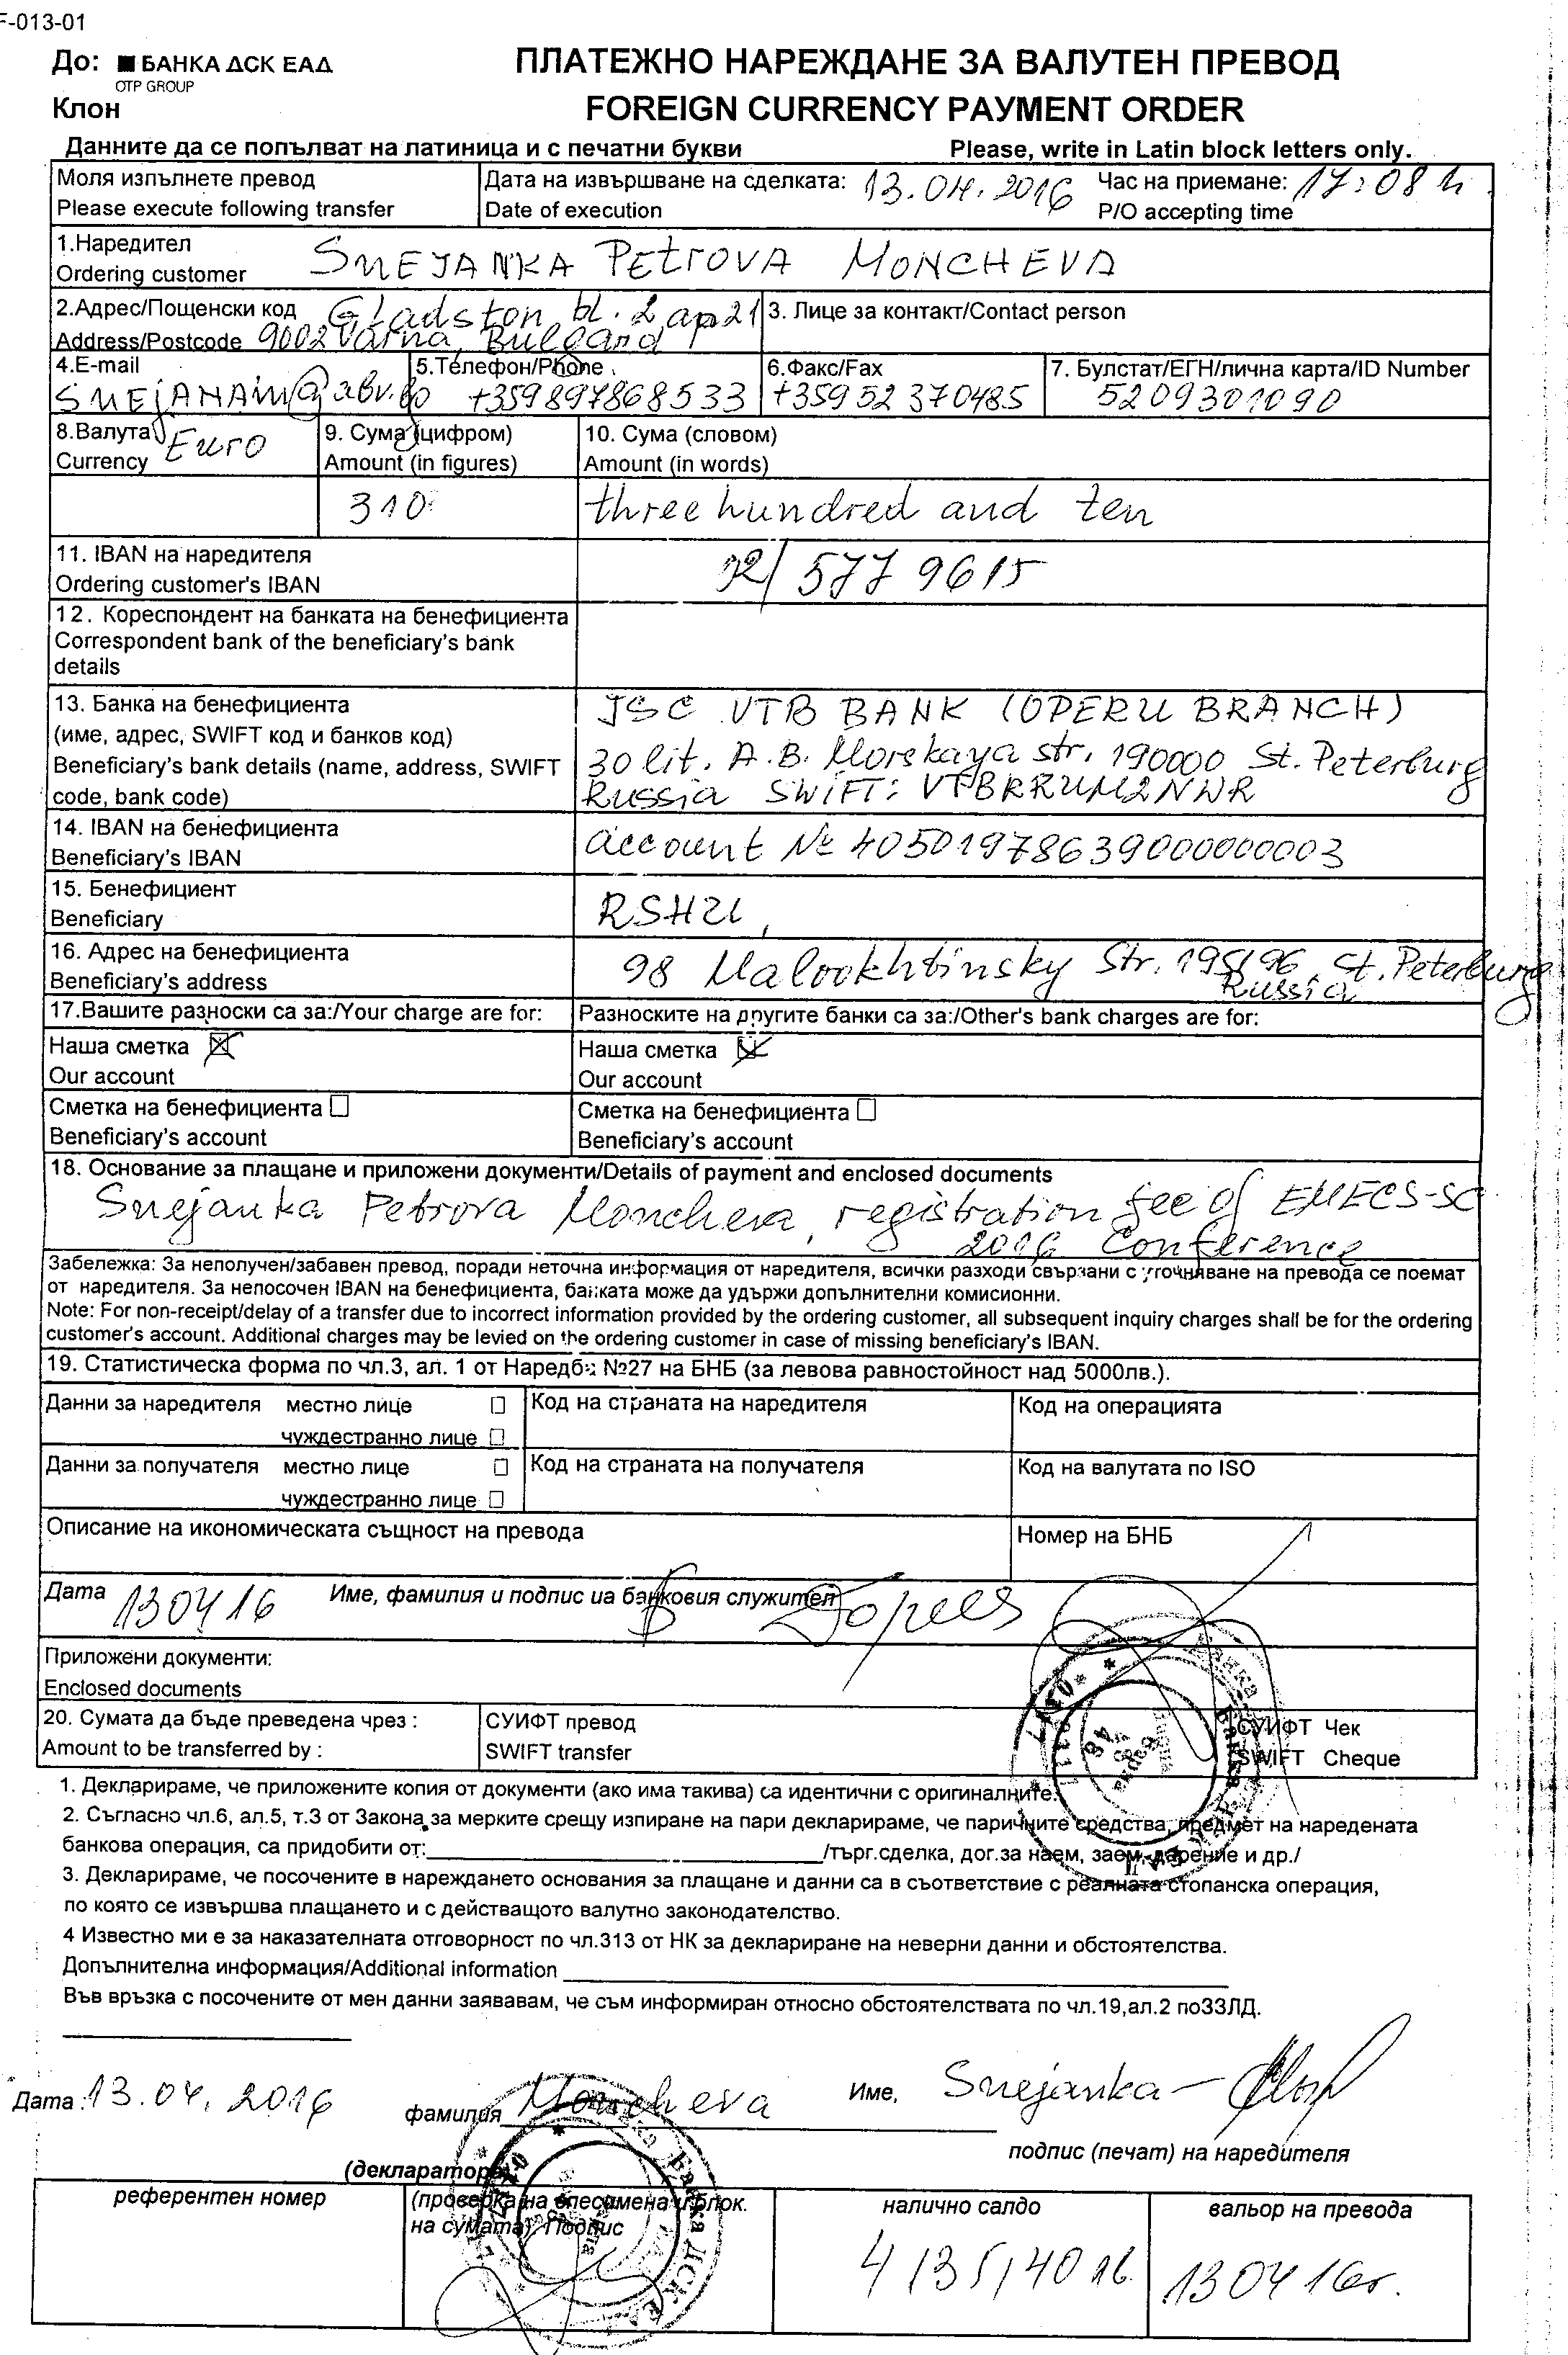 F-013-01
До: БАНКА ДСК ЕАД
OTP GROUP
Клон
ПЛАТЕЖНО НАРЕЖДАНЕ ЗА ВАЛУТЕН ПРЕВОД
FOREIGN CURRENCY PAYMENT ORDER
Данните да се попълват на латиница и с печатни букви Please, write in Latin block letters only.
Моля изпълнете превод
Please execute following transfer
Дата на извършване на сделката: 13.04.2016
Date of execution
Час на приемане: 17:08 h
P/O accepting time
1.Наредител
Ordering customer
SNEJANKA PETROVA MONCHEVA
2.Адрес/Пощенски код Gladston bl. 2 ap 21
Address/Postcode 9002 Varna,
3. Лице за контакт/Contact person
4.E-mail
SNEJANAM@abv.bg
5.Телефон/Phone
+359897868533
6.Факс/Fax
+359 52 370485
7. Булстат/ЕГН/лична карта/ID Number
5209301090
8.Валута Euro
Currency
9. Сума (цифром)
Amount (in figures)
10. Сума (словом)
Amount (in words)
310
three hundred and ten
11. IBAN на наредителя
Ordering customer's IBAN
5779615
12. Кореспондент на банката на бенефициента
Correspondent bank of the beneficiary's bank
details
13. Банка на бенефициента
(име, адрес, SWIFT код и банков код)
Beneficiary's bank details (name, address, SWIFT
code, bank code)
JSC VTB BANK (OPERU BRANCH)
30 lit. A. B. Morskaya str. 190000 St. Peterburg
Russia SWIFT: VTBRRUM2NWR
14. IBAN на бенефициента
Beneficiary's IBAN
account № 40501978639000000003
15. Бенефициент
Beneficiary
RSHU,
16. Адрес на бенефициента
Beneficiary's address
98 Malookhtinsky Str. 195196, St. Peterburg
Russia
17.Вашите разноски са за:/Your charge are for:
Разноските на другите банки са за:/Other's bank charges are for:
Наша сметка
Our account
Наша сметка
Our account
Сметка на бенефициента
Beneficiary's account
Сметка на бенефициента
Beneficiary's account
18. Основание за плащане и приложени документи/Details of payment and enclosed documents
Snejanka Petrova Moncheva, registration fee of EMECS-SC
2016 Conference
Забележка: За неполучен/забавен превод, поради неточна информация от наредителя, всички разходи свързани с уточняване на превода се поемат
от наредителя. За непосочен IBAN на бенефициента, банката може да удържи допълнителни комисионни.
Note: For non-receipt/delay of a transfer due to incorrect information provided by the ordering customer, all subsequent inquiry charges shall be for the ordering
customer's account. Additional charges may be levied on the ordering customer in case of missing beneficiary's IBAN.
19. Статистическа форма по чл.3, ал. 1 от Наредба №27 на БНБ (за левова равностойност над 5000лв.).
Данни за наредителя местно лице
чуждестранно лице
Код на страната на наредителя
Код на операцията
Данни за получателя местно лице
чуждестранно лице
Код на страната на получателя
Код на валутата по ISO
Описание на икономическата същност на превода
Номер на БНБ
Дата 130416 Име, фамилия и подпис на банковия служител
Приложени документи:
Enclosed documents
20. Сумата да бъде преведена чрез :
Amount to be transferred by :
СУИФТ превод
SWIFT transfer
СУИФТ Чек
SWIFT Cheque
1. Декларираме, че приложените копия от документи (ако има такива) са идентични с оригиналните.
2. Съгласно чл.6, ал.5, т.3 от Закона за мерките срещу изпиране на пари декларираме, че паричните средства, предмет на наредената
банкова операция, са придобити от: /търг.сделка, дог.за наем, заем, дарение и др./
3. Декларираме, че посочените в нареждането основания за плащане и данни са в съответствие с реалната стопанска операция,
по която се извършва плащането и с действащото валутно законодателство.
4 Известно ми е за наказателната отговорност по чл.313 от НК за деклариране на неверни данни и обстоятелства.
Допълнителна информация/Additional information
Във връзка с посочените от мен данни заявавам, че съм информиран относно обстоятелствата по чл.19,ал.2 поЗЗЛД.
Дата 13.04.2016 фамилия Moncheva Име, Snejanka
подпис (печат) на наредителя
(декларатора)
референтен номер
(проверка на спесимена и блок.
на сумата) Подпис
налично салдо
вальор на превода
130416г.